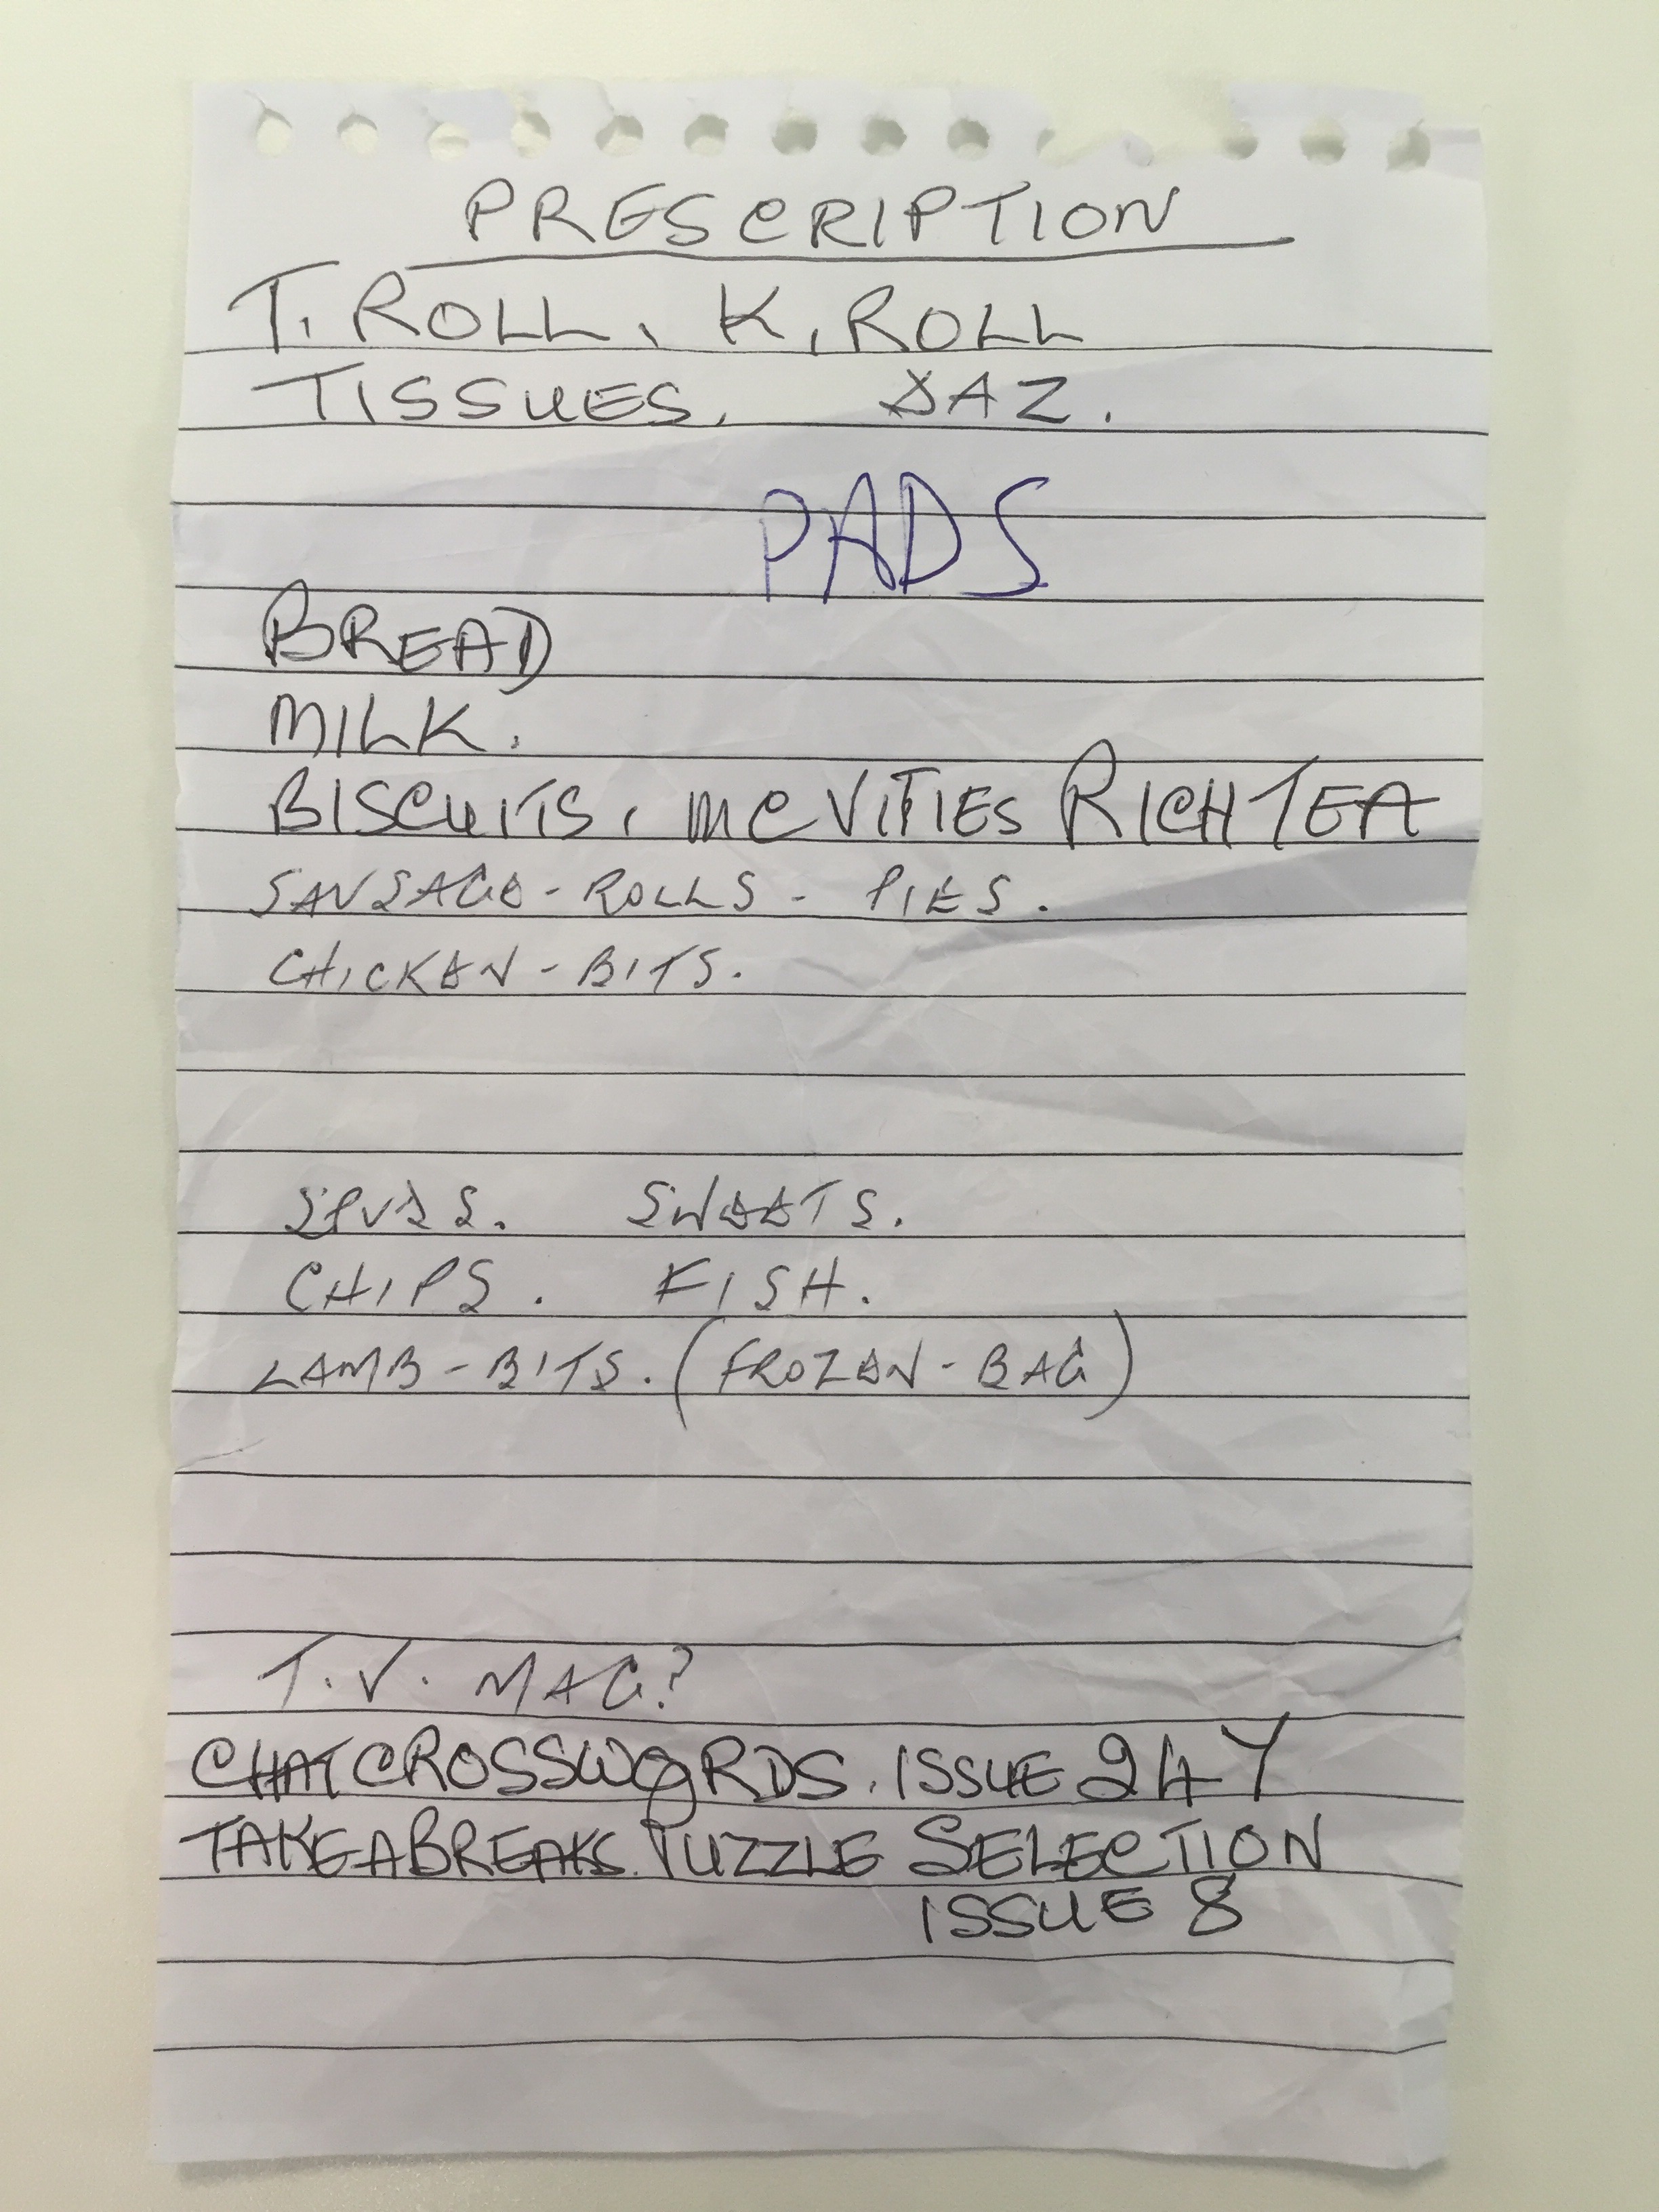 PRESCRIPTION
T. ROLL, K. ROLL
TISSUES. DAZ.
PADS
BREAD
MILK.
BISCUITS, MCVITIES RICH TEA
SAUSAGE-ROLLS - PIES.
CHICKEN-BITS.
SPUDS. SWEETS.
CHIPS. FISH.
LAMB-BITS. (FROZEN-BAG)
T.V. MAG?
CHAT CROSSWORDS. ISSUE 24Y
TAKE A BREAKS. PUZZLE SELECTION
ISSUE 8